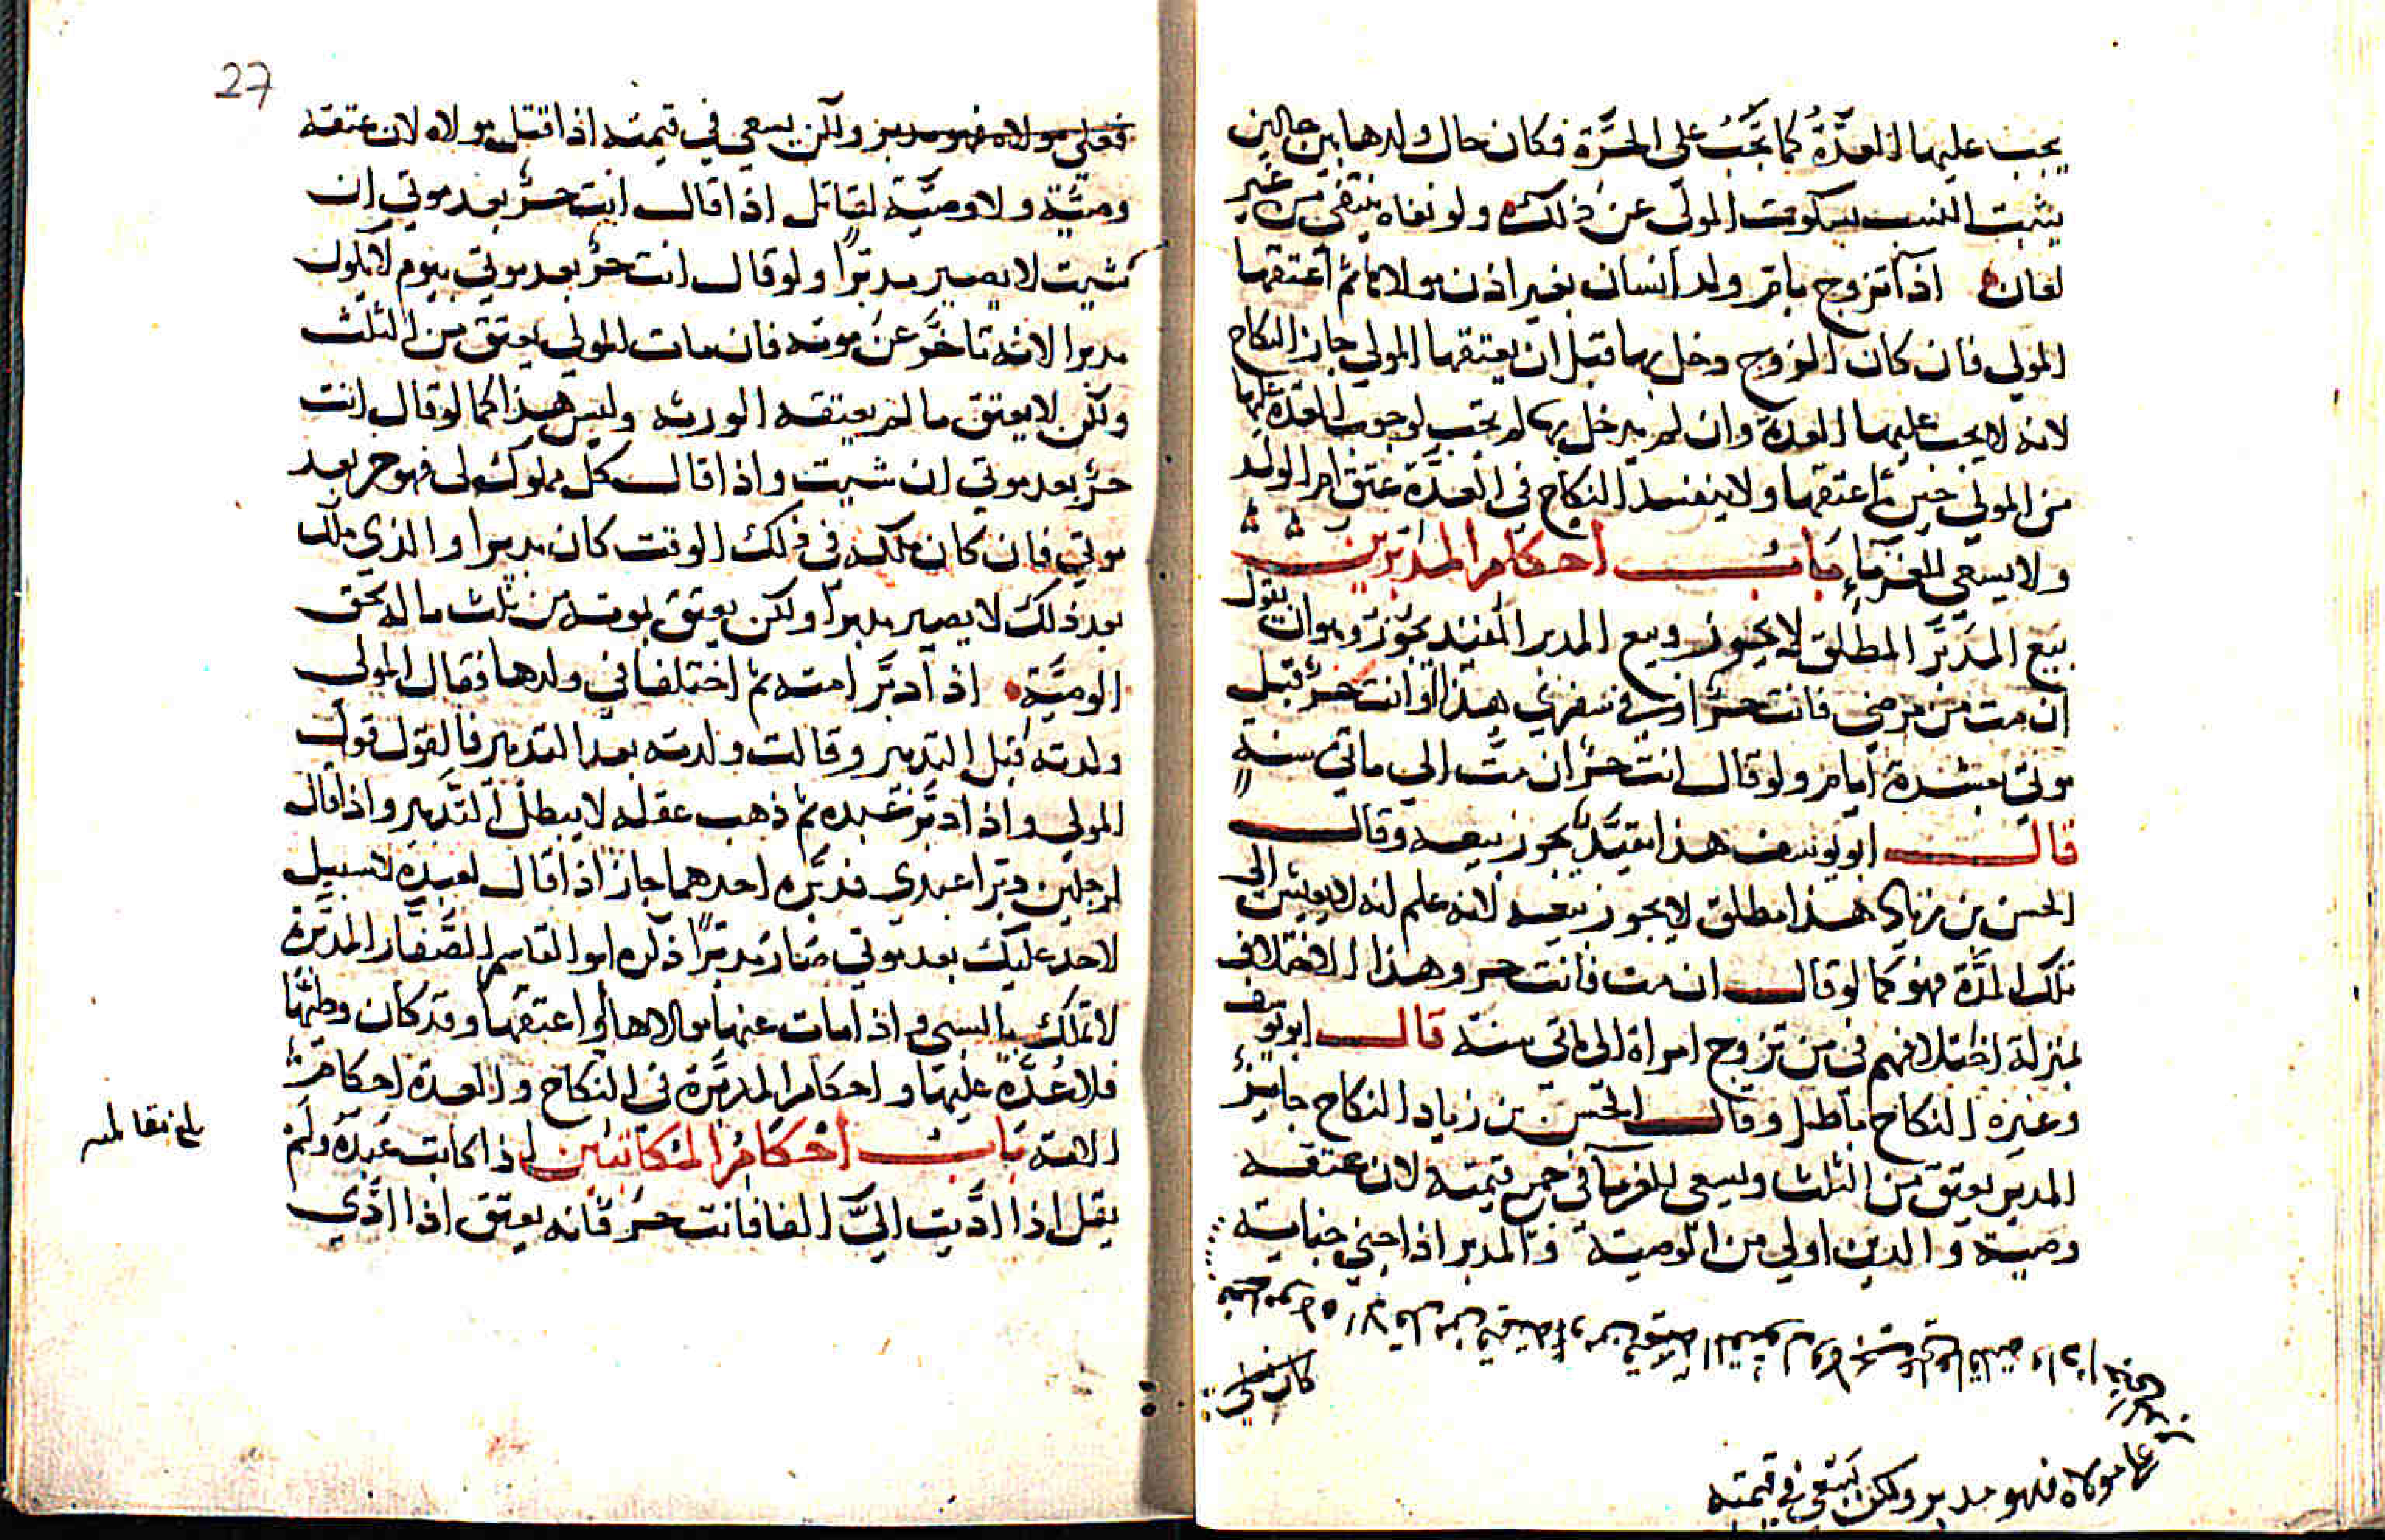 يجب عليها العدّة كما تجب على الحرّة فكان حال ولدها بين حالين
يثبت النسب بسكوت المولى عن ذلك ولو نفاه ينتفي من غير
لعان اذا تزوج بام ولد انسان بغير اذن مولاها ثم اعتقها
المولى فان كان الزوج دخل بها قبل ان يعتقها المولى جاز النكاح
لانه لا يجب عليها العدة وان لم يدخل بها لم يجب لوجوب العدة عليها
من المولى حين اعتقها ولا ينفسد النكاح في العدّة عتق ام الولد
ولا يسعى للغرماء باب احكام المدبرين
بيع المدبّر المطلق لا يجوز وبيع المدبر المقيد يجوز وهو ان يقول
ان مت من مرضي فانت حرّ او في سفري هذا او انت حرّ قبل
موتي بعشرة ايام ولو قال انت حرّ ان متّ الى ماتي سنة
قال ابو يوسف هذا مقيّد يجوز بيعه وقال
الحسن بن زياد هذا مطلق لا يجوز بيعه لانه علم انه لا يعيش الى
تلك المدّة فهو كما لو قال ان مت فانت حر وهذا الاختلاف
بمنزلة اختلافهم في من تزوج امراة الى ماتي سنة قال ابو يوسف
وغيره النكاح باطل وقال الحسن بن زياد النكاح جايز
المدبر يعتق من الثلث ويسعى للغرماء في جميع قيمته لان عتقه
وصية والدين اولى من الوصية والمدبر اذا جنى جناية
مولاه فهو مدبر ولكن يسعى في قيمته
27
فعلى مولاه فهو مدبر ولكن يسعى في قيمته اذا قتل مولاه لان عتقه
وصيّة ولا وصيّة لقاتل اذا قال انت حرّ بعد موتي ان
شيت لا يصير مدبّرا ولو قال انت حرّ بعد موتي بيوم لا يكون
مدبرا لانه تاخّر عن موته فان مات المولى يعتق من الثلث
ولكن لا يعتق ما لم يعتقه الورثه وليس هذا كما لو قال انت
حرّ بعد موتي ان شيت واذا قال كل مملوك لى فهو حر بعد
موتي فان كان ملكه فى ذلك الوقت كان مدبرا والذي ملك
بعد ذلك لا يصير مدبرا ولكن يعتق بموته من ثلث ماله بحق
الوصيّة اذا دبّر امته ثم اختلفا في ولدها فقال المولى
ولدته قبل التدبير وقالت ولدته بعد التدبير فالقول قول
المولى واذا دبّر عبده ثم ذهب عقله لا يبطل التدبير واذا قال
لرجلين دبّرا عبدي فدبّره احدهما جاز اذا قال لعبده لا سبيل
لاحد عليك بعد موتي صار مدبّرا ذكره ابو القاسم الصّفّار المدبّرة
لا تملك بالسبي واذا مات عنها مولاها او اعتقها وقد كان وطئها
فلا عدّة عليها واحكام المدبّرة في النكاح والعدة احكام
الامة باب احكام المكاتبين اذا كاتب عبده ولم
يقل اذا ادّيت اليّ الفا فانت حرّ فانه يعتق اذا ادّي